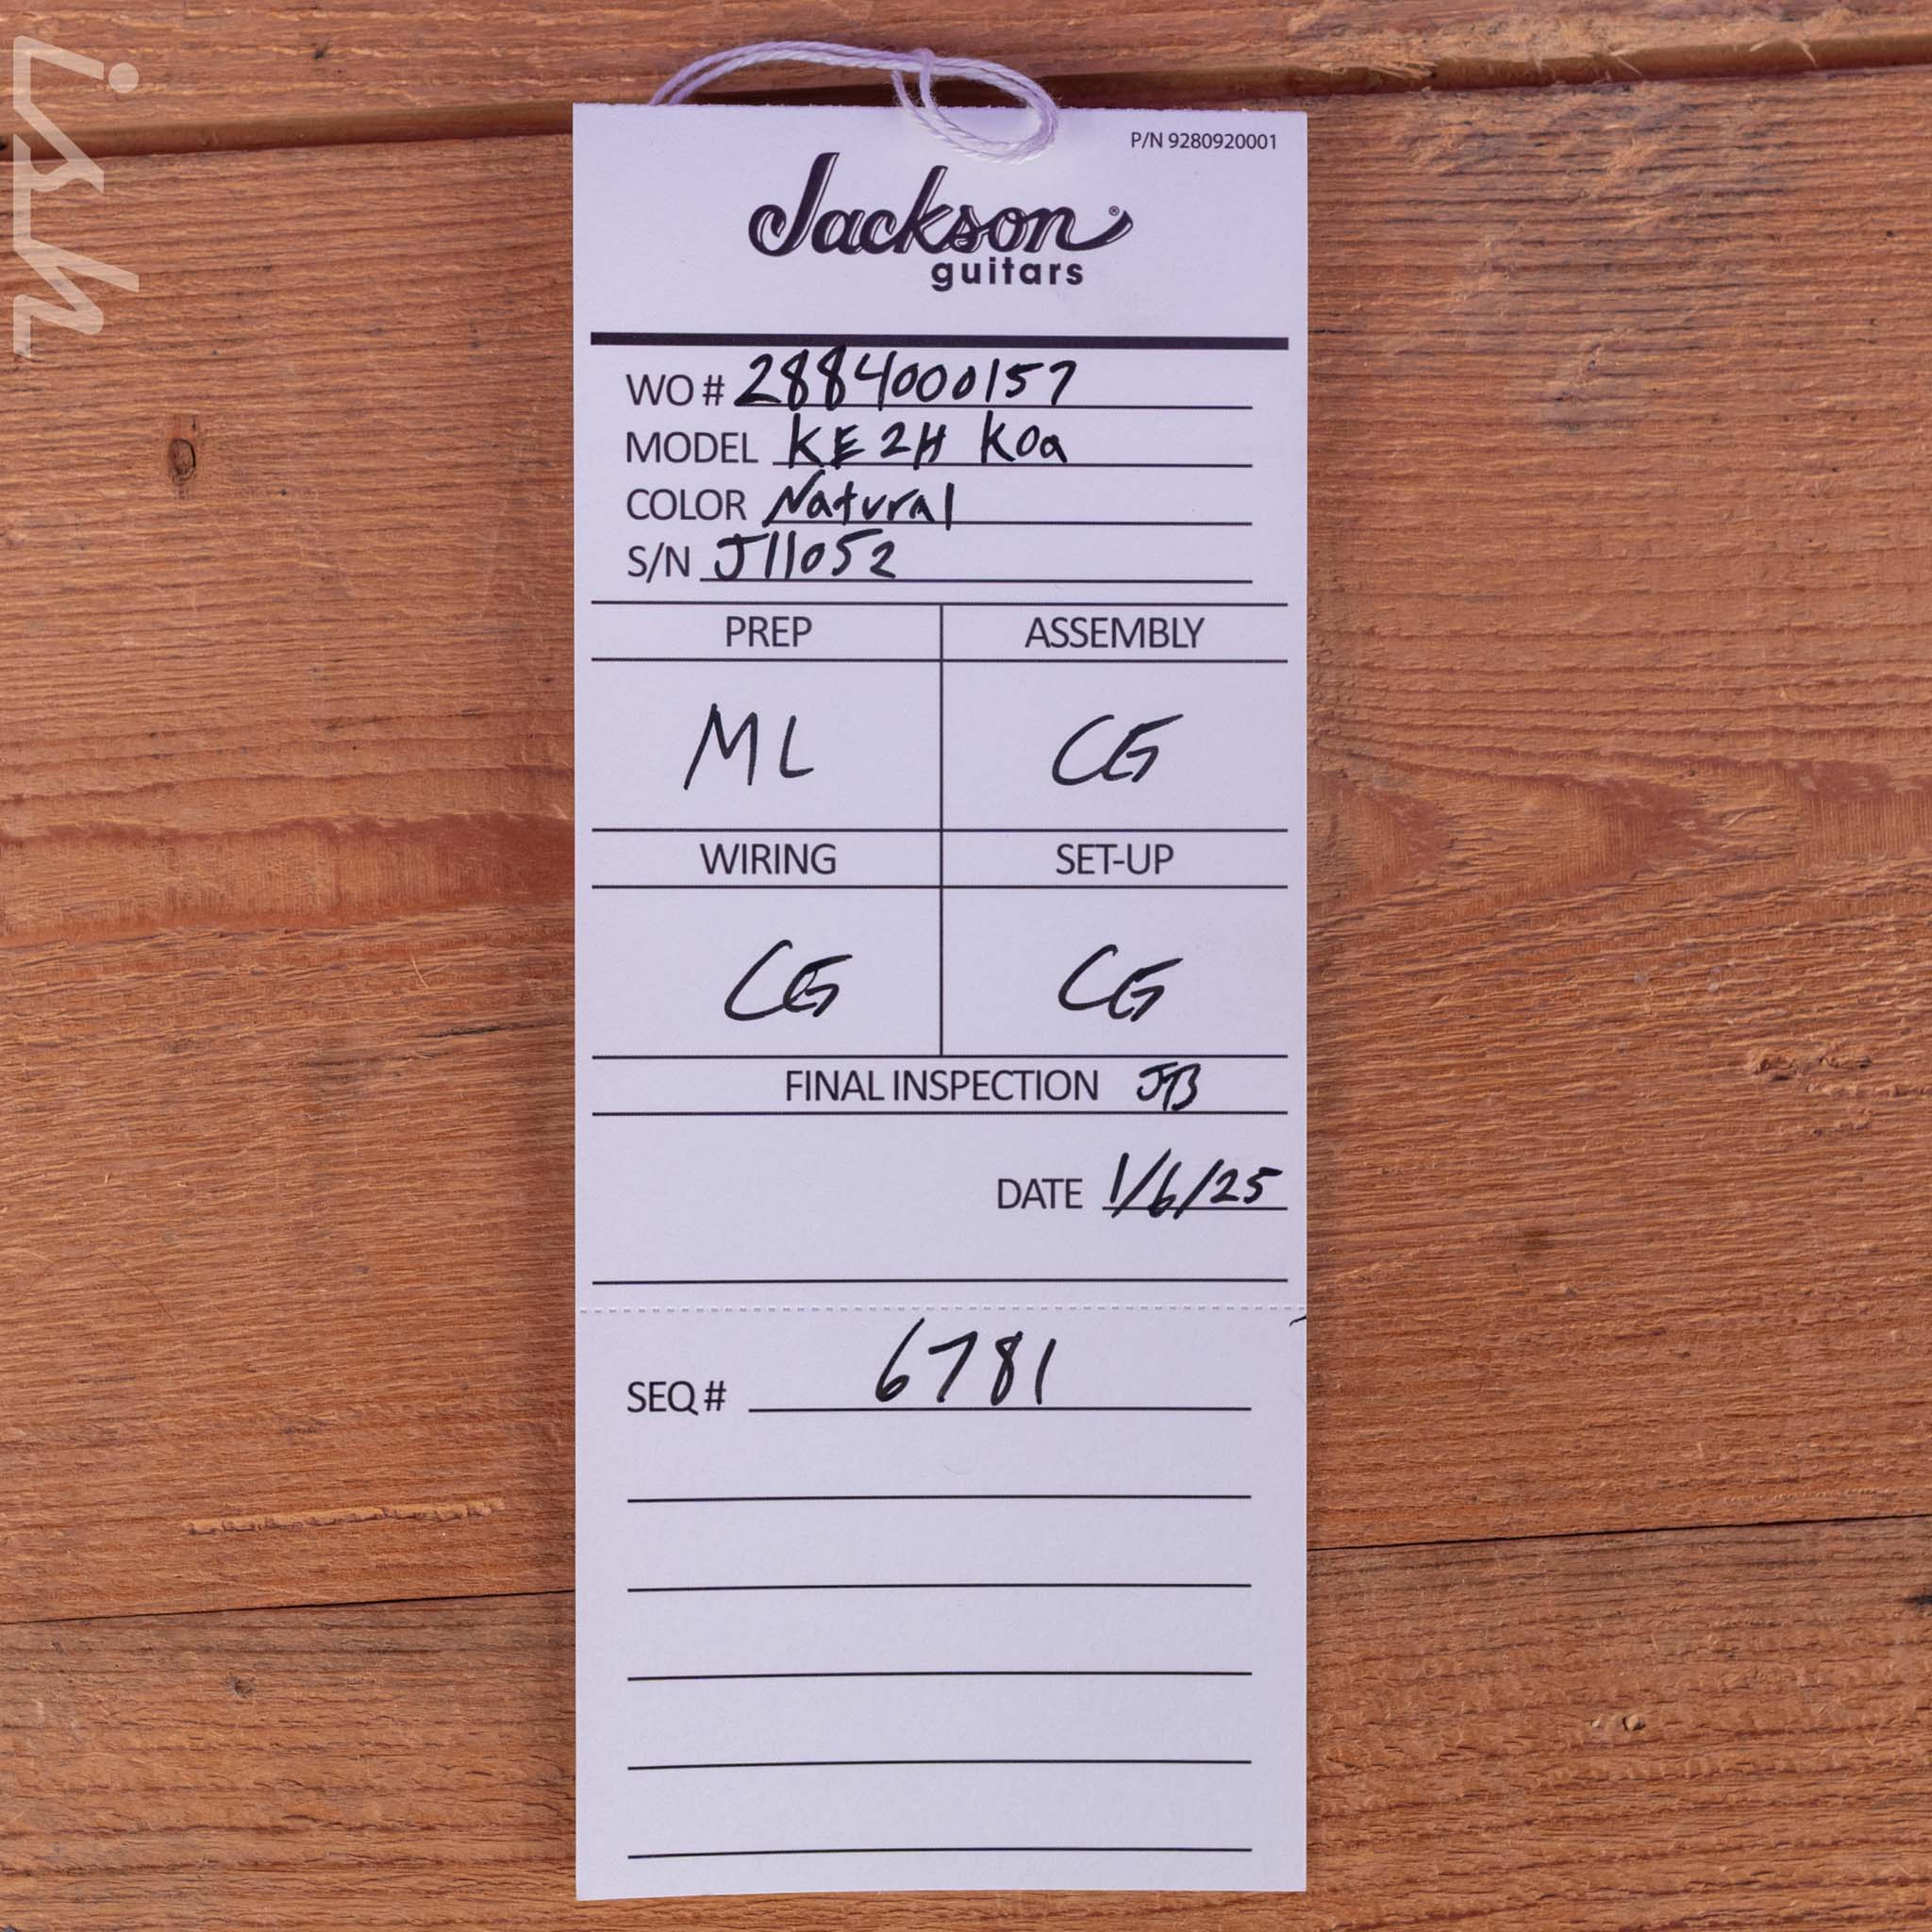 ish
P/N 9280920001
Jackson®
guitars
WO # 2884000157
MODEL KE2H Koa
COLOR Natural
S/N J11052
PREP ASSEMBLY
ML CG
WIRING SET-UP
CG CG
FINAL INSPECTION JTB
DATE 1/6/25
SEQ # 6781